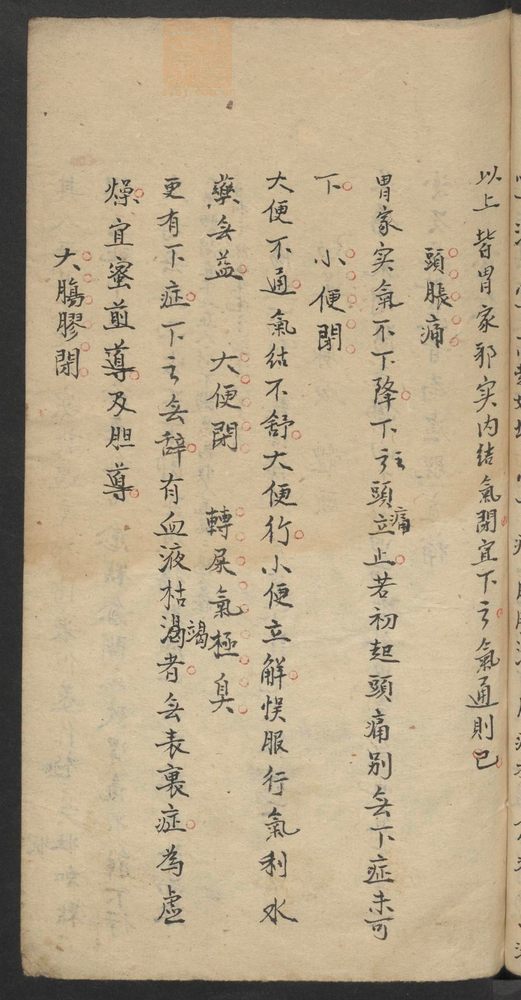 以上皆胃家邪实内结氣閉宜下之氣通則已
頭脹痛
胃家实氣不下降下之頭痛立止若初起頭痛別無下症未可
下　小便閉
大便不通氣结不舒大便行小便立解悮服行氣利水
藥無益　大便閉　轉屎氣極臭
更有下症下之無辞有血液枯渴竭者無表裏症為虛
燥宜蜜煎導及胆導
大腸膠閉